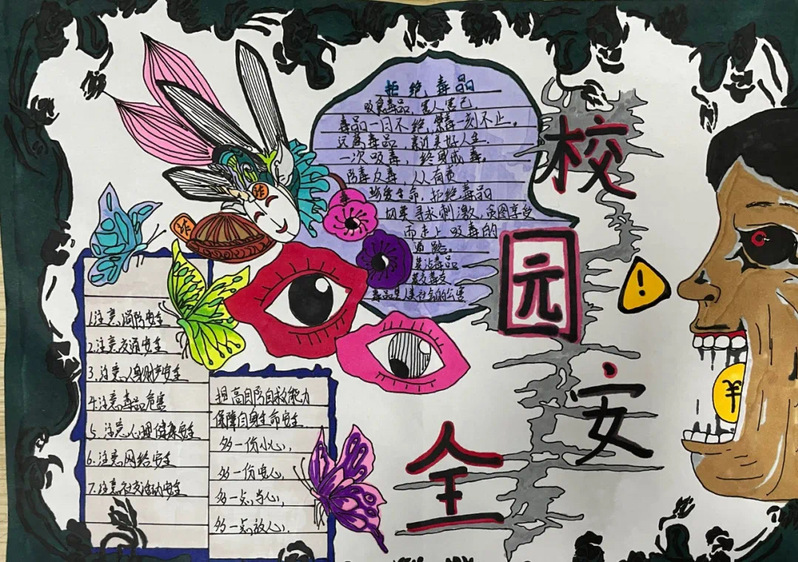 拒绝毒品
吸食毒品,害人害己
毒品一日不绝,禁毒一刻不止。
远离毒品,
一次吸毒,终身戒毒。
防毒反毒,人人有责
珍爱生命,拒绝毒品
切莫寻求刺激,贪图享受
而走上吸毒的
道路。
校
园
安
全
!
¥
诈
诈
1.注意消防安全
2.注意交通安全
3.注意人身财产安全
4.注意毒品危害
5.注意心理健康安全
6.注意网络安全
7.注意社交活动安全
提高自防自救能力
保障自身生命安全
多一份小心,
多一点放心,